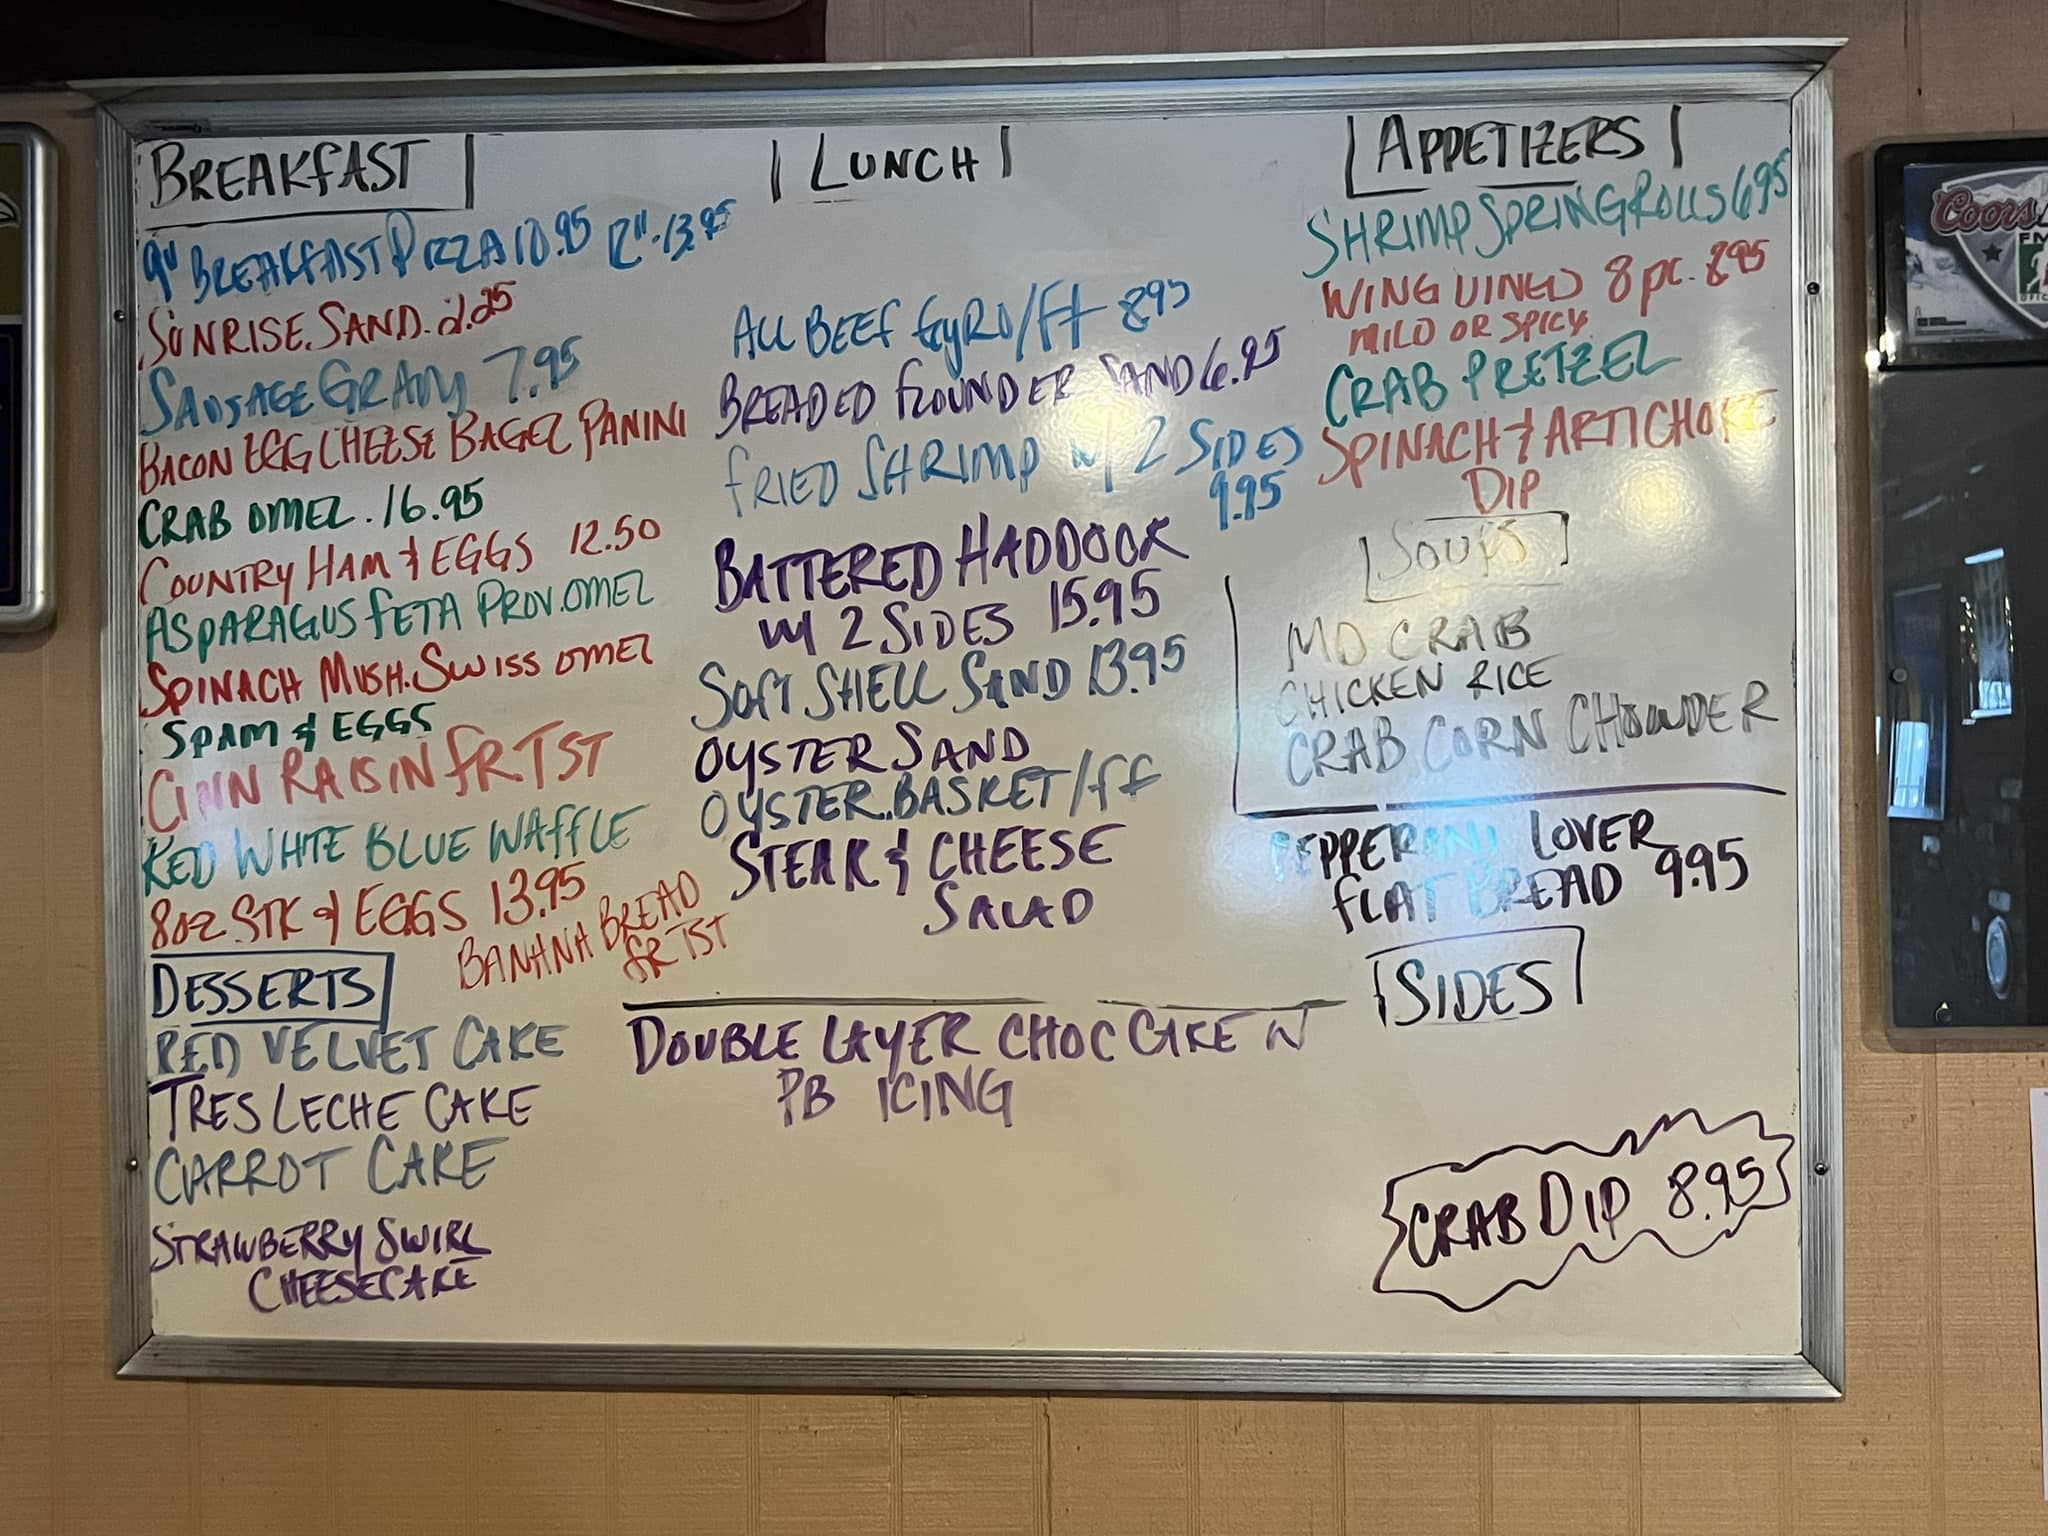 BREAKFAST
9" BREAKFAST PIZZA 10.95 12".13.95
SUNRISE.SAND.2.25
SAUSAGE GRAVY 7.95
BACON EGG CHEESE BAGEL PANINI
CRAB OMEL.16.95
COUNTRY HAM & EGGS 12.50
ASPARAGUS FETA PROV.OMEL
SPINACH MUSH.SWISS OMEL
SPAM & EGGS
CINN RAISIN FR TST
RED WHITE BLUE WAFFLE
8OZ.STK & EGGS 13.95
BANANA BREAD
FR TST
DESSERTS
RED VELVET CAKE
TRES LECHE CAKE
CARROT CAKE
STRAWBERRY SWIRL
CHEESECAKE
LUNCH
ALL BEEF GYRO/FF 8.95
BREADED FLOUNDER SAND 6.95
FRIED SHRIMP W/ 2 SIDES
9.95
BATTERED HADDOCK
W/ 2 SIDES 15.95
SOFT SHELL SAND 13.95
OYSTER SAND
OYSTER.BASKET/FF
STEAK & CHEESE
SALAD
DOUBLE LAYER CHOC CAKE W
PB ICING
APPETIZERS
SHRIMP SPRING ROLLS 6.95
WING DINGS 8 PC. 8.95
MILD OR SPICY
CRAB PRETZEL
SPINACH & ARTICHOKE
DIP
SOUPS
MD CRAB
CHICKEN RICE
CRAB CORN CHOWDER
PEPPERONI LOVER
FLAT BREAD 9.95
SIDES
CRAB DIP 8.95
Coors